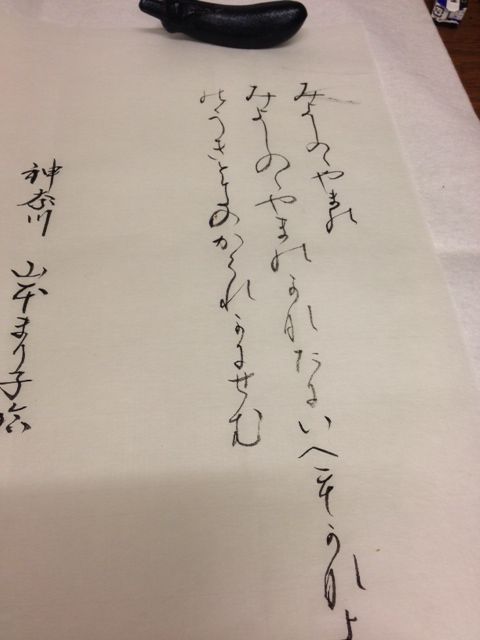 みよしのゝやまの
みよしのゝやまのかなたにいへもかなよ
のうきときのかくれかにせむ
神奈川 山本まり子臨